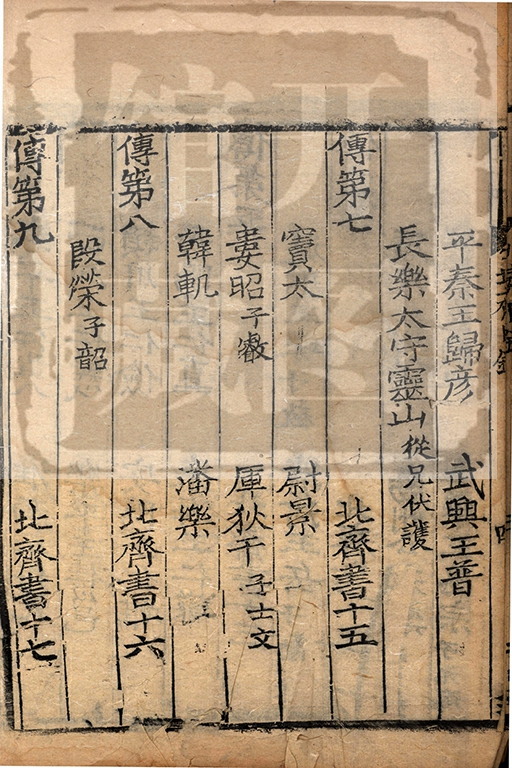 平秦王歸彦 武興王普
長樂太守靈山 從兄伏護
傳第七 北齊書十五
竇太 尉景
婁昭 子叡 厙狄干 子士文
韓軌 潘樂
傳第八 北齊書十六
段榮 子韶
傳第九 北齊書十七